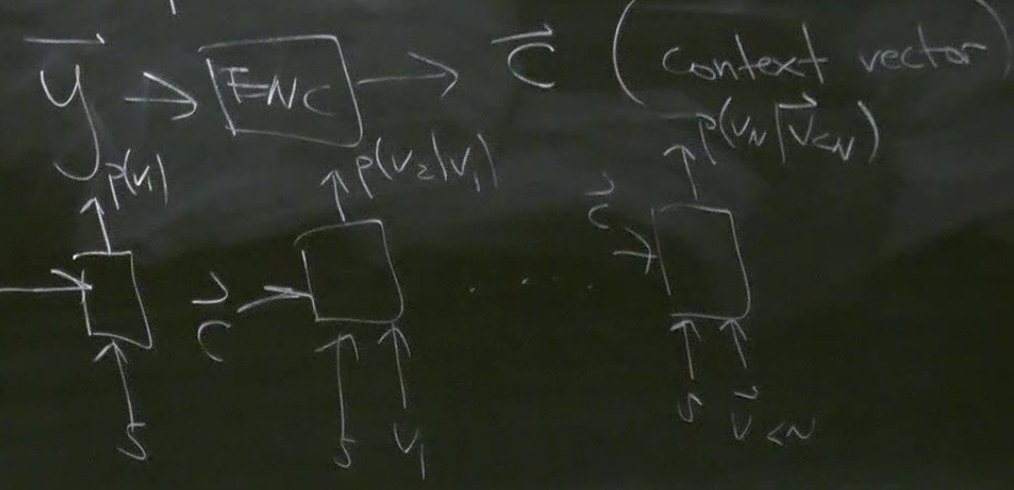 y⃗ → ENC → c⃗ (context vector)
p(v₁) p(v₂|v₁) p(v_N|v⃗<N)
c⃗ c⃗
S S v₁ S v⃗<N